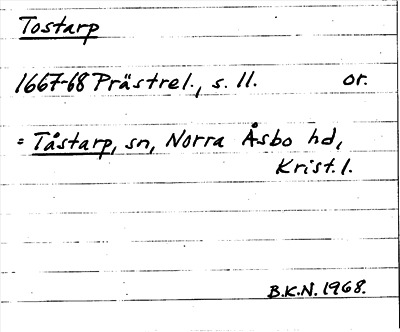 Tostarp
1667-68 Prästrel., s. 11. or.
= Tåstarp, sn, Norra Åsbo hd,
Krist. l.
B.K.N. 1968.